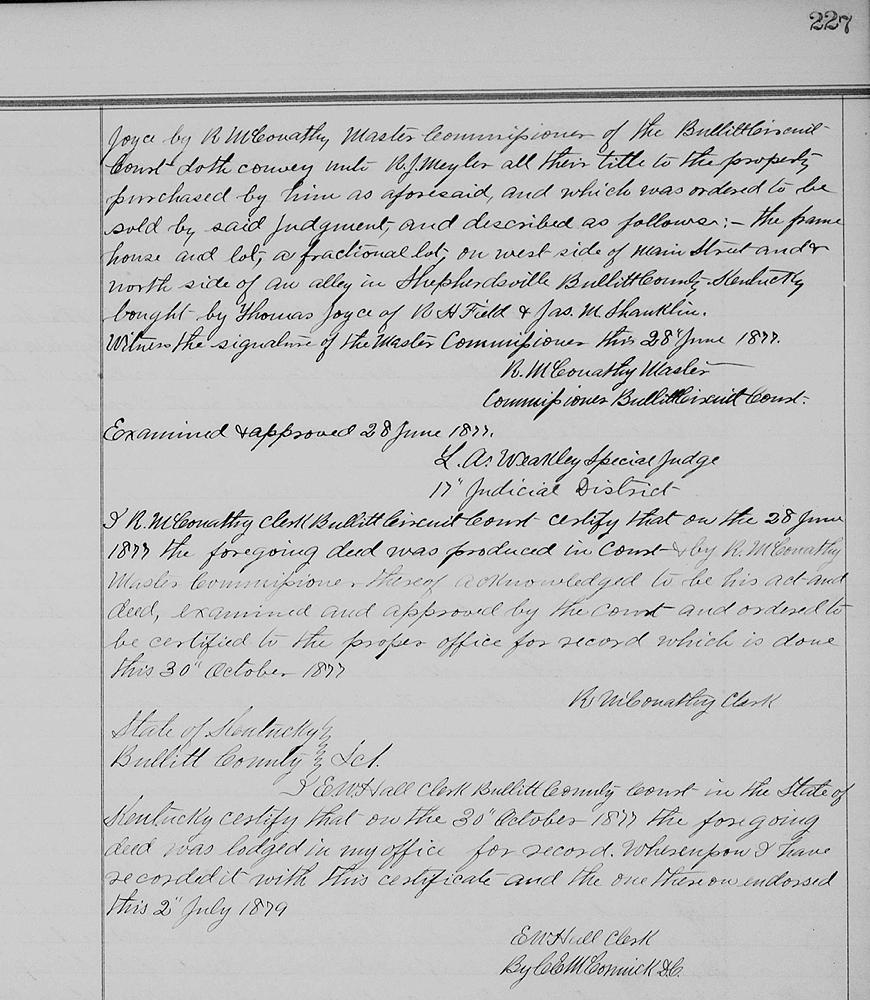 227
Joyce by R McConathy Master Commissioner of the Bullitt Circuit
Court doth convey unto R. J. Meyler all their title to the property
purchased by him as aforesaid, and which was ordered to be
sold by said Judgment, and described as follows: – the frame
house and lot, a fractional lot, on west side of main Street and &
north side of an alley in Shepherdsville Bullitt County Kentucky
bought by Thomas Joyce of R H Field & Jas. M Shanklin.
Witness the signature of the Master Commissioner this 28" June 1877.
R. McConathy Master
Commissioner Bullitt Circuit Court.
Examined & approved 28 June 1877.
L. A. Weakley Special Judge
17" Judicial District
I R. McConathy Clerk Bullitt Circuit Court certify that on the 28 June
1877 the foregoing deed was produced in Court & by R. McConathy
Master Commissioner thereof acknowledged to be his act and
deed, examined and approved by the court and ordered to
be certified to the proper office for record which is done
this 30" October 1877
R McConathy Clerk
State of Kentucky
Bullitt County Sct.
I E W Hall Clerk Bullitt County Court in the State of
Kentucky certify that on the 30" October 1877 the foregoing
deed was lodged in my office for record. Whereupon I have
recorded it with this certificate and the one thereon endorsed
this 2" July 1879
E W Hall Clerk
By C E McCormick D.C.